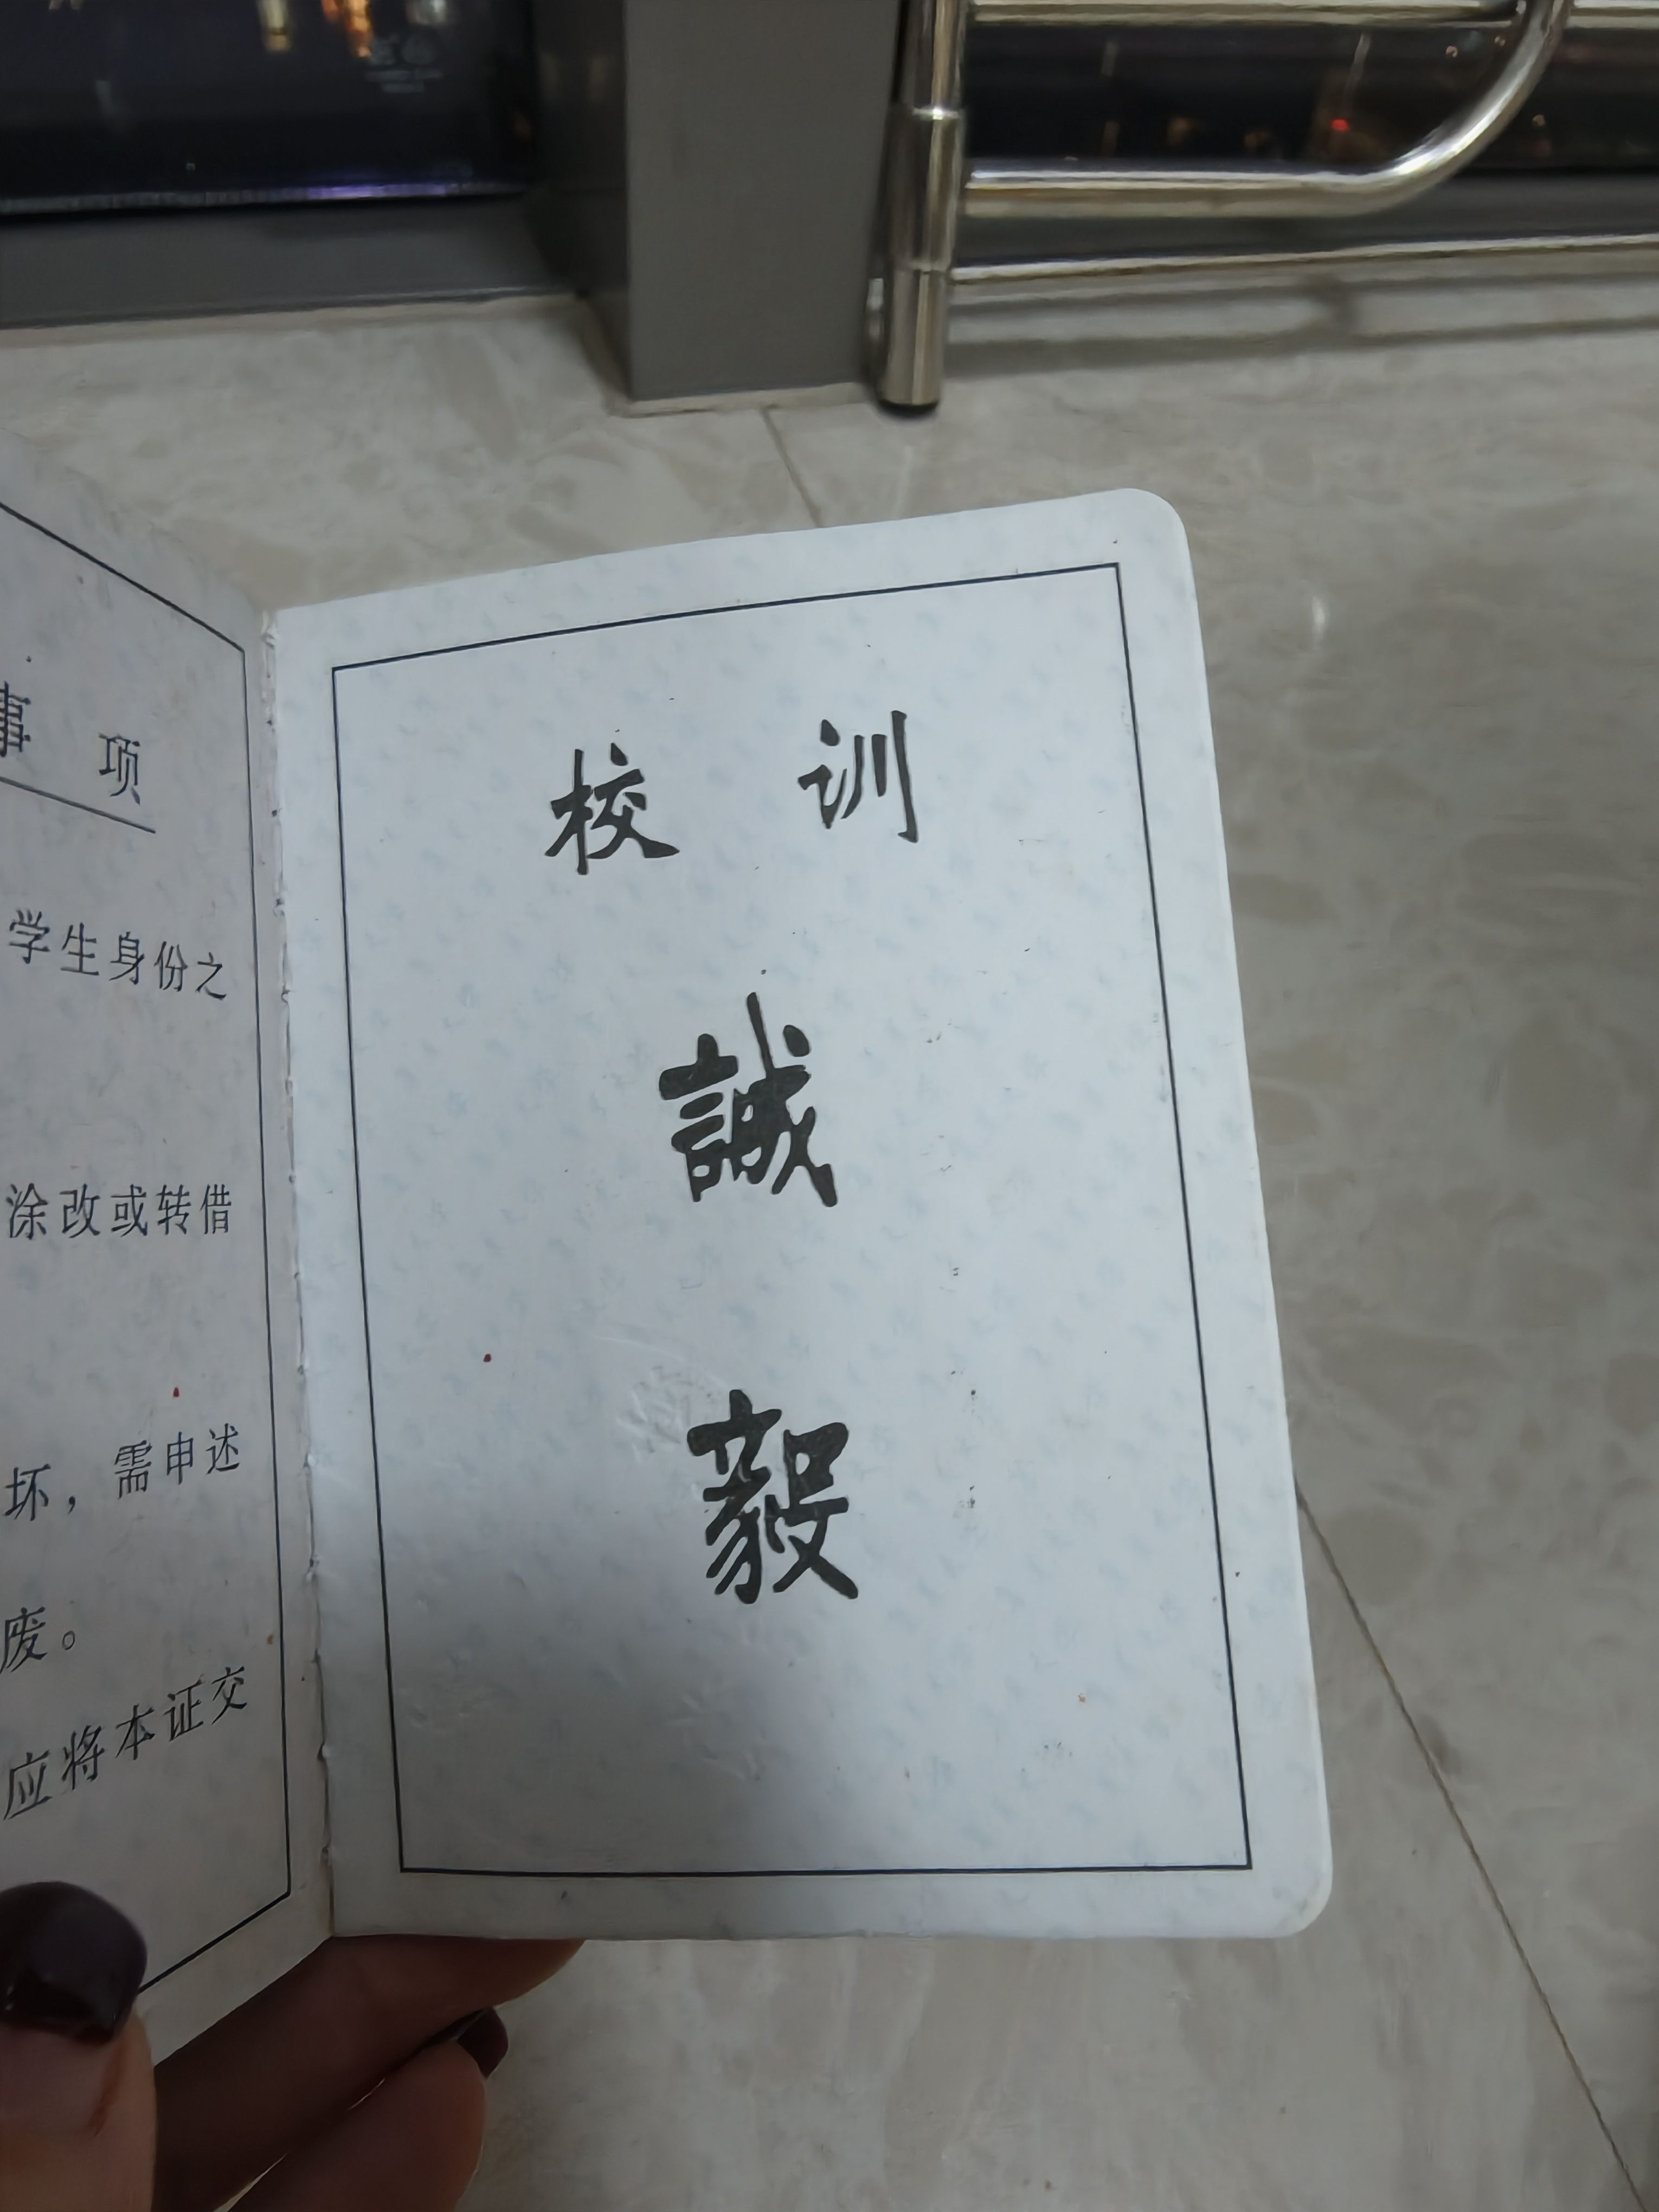 事项
学生身份之
涂改或转借
坏，需申述
废。
应将本证交
校训
誠
毅